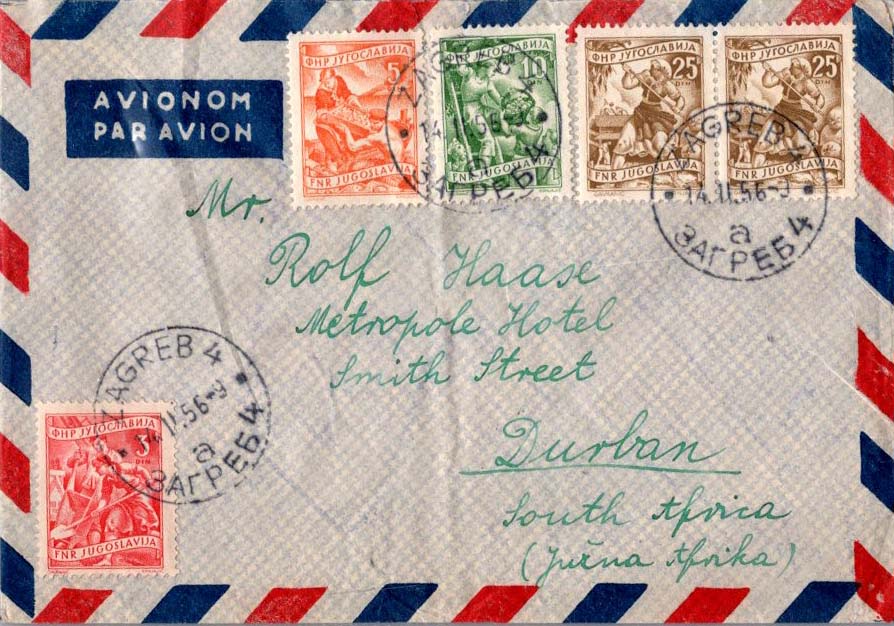 AVIONOM
PAR AVION
ФНР ЈУГОСЛАВИЈА
5
FNR JUGOSLAVIJA
ФНР ЈУГОСЛАВИЈА
10
FNR JUGOSLAVIJA
ФНР ЈУГОСЛАВИЈА
25
DIN
FNR JUGOSLAVIJA
ФНР ЈУГОСЛАВИЈА
25
DIN
FNR JUGOSLAVIJA
ZAGREB 4
14.II.56-9
a
ЗАГРЕБ 4
ZAGREB 4
14.II.56-9
a
ЗАГРЕБ 4
Mr.
Rolf Haase
Metropole Hotel
Smith Street
Durban
South Africa
(Južna Afrika)
ZAGREB 4
14.II.56-9
a
ЗАГРЕБ 4
ФНР ЈУГОСЛАВИЈА
3
DIN
FNR JUGOSLAVIJA